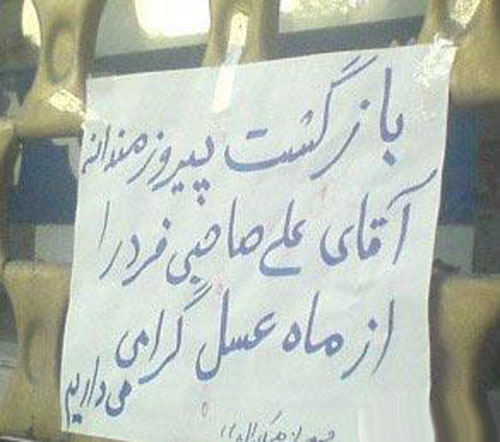 بازگشت پیروزمندانه
آقای علی صاحبی فرد را
از ماه عسل گرامی
می داریم